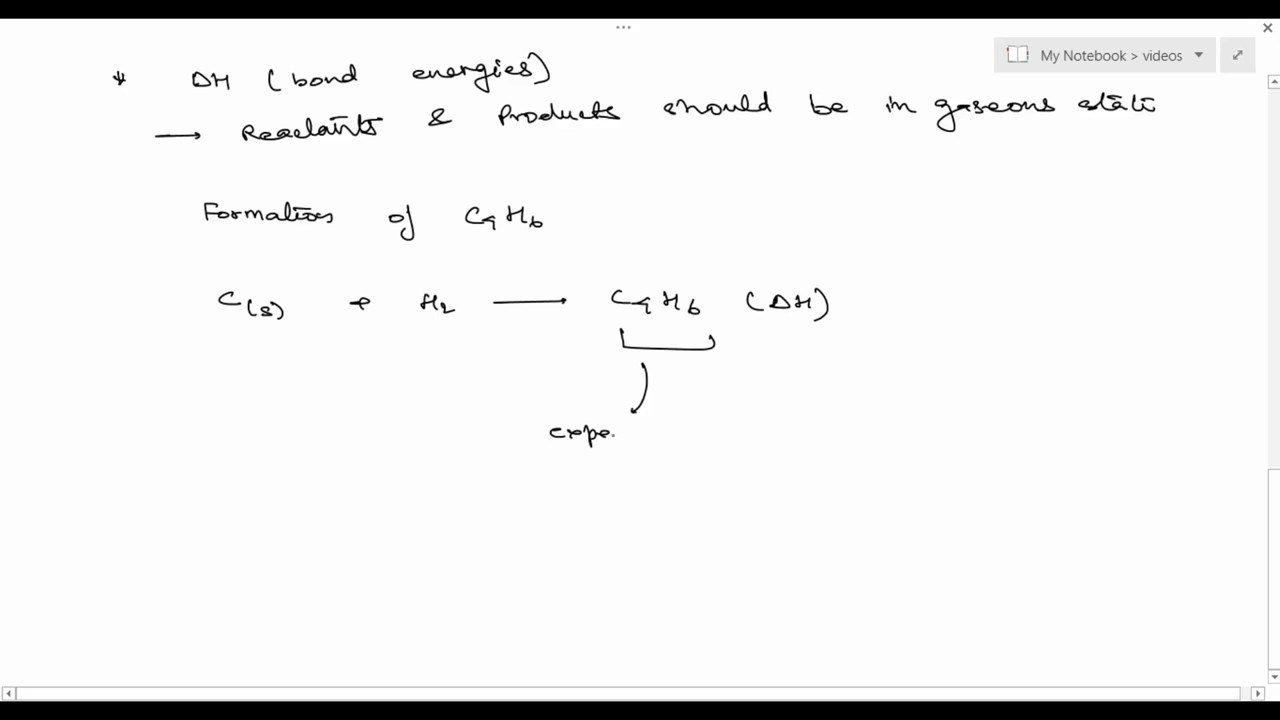 My Notebook > videos
* ΔH (bond energies)
→ Reactants & Products should be in gaseous state
Formation of C4H6
C(s) + H2 → C4H6 (ΔH)
expe.